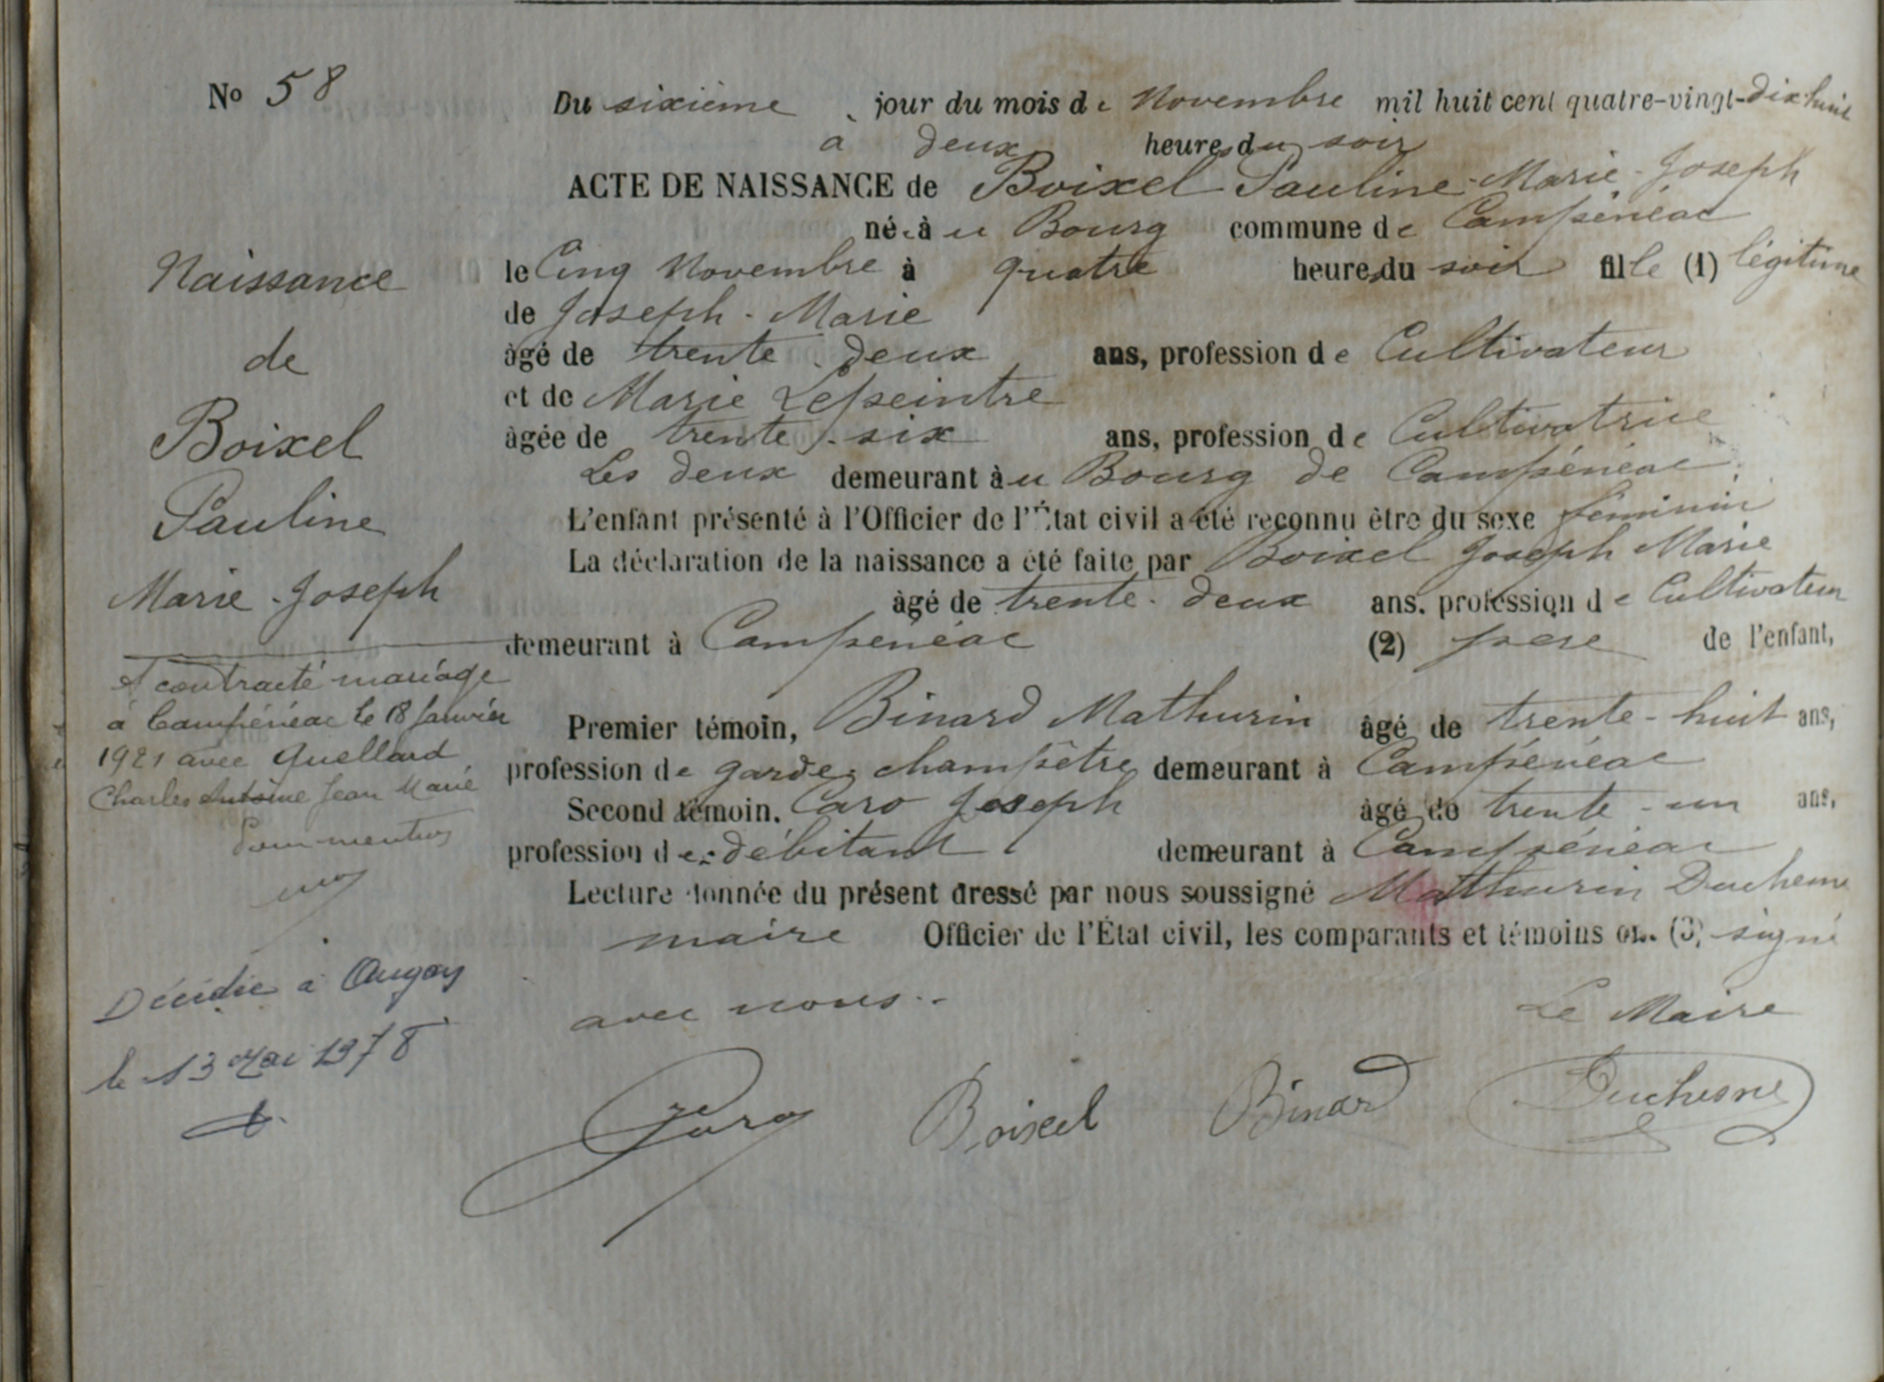 No 58
Du sixième jour du mois de Novembre mil huit cent quatre-vingt-dix huit
à deux heures du soir
ACTE DE NAISSANCE de Boixel Pauline-Marie-Joseph
née à u Bourg commune de Campénéac
le Cinq Novembre à quatre heures du soir fille (1) légitime
de Joseph-Marie
âgé de trente-deux ans, profession de Cultivateur
et de Marie Lepeintre
âgée de trente-six ans, profession de Cultivatrice
Les deux demeurant à u Bourg de Campénéac
L'enfant présenté à l'Officier de l'État civil a été reconnu être du sexe féminin
La déclaration de la naissance a été faite par Boixel Joseph Marie
âgé de trente-deux ans, profession de Cultivateur
demeurant à Campénéac (2) père de l'enfant,
Premier témoin, Binard Mathurin âgé de trente-huit ans,
profession de garde champêtre demeurant à Campénéac
Second témoin, Caro Joseph âgé de trente-un ans,
profession de débitant demeurant à Campénéac
Lecture donnée du présent dressé par nous soussigné Mathurin Duchesne
maire Officier de l'État civil, les comparants et témoins ont (3) signé
avec nous.
Le Maire
Caro Boixel Binard Duchesne
Naissance
de
Boixel
Pauline
Marie-Joseph
A contracté mariage
à Campénéac le 18 Janvier
1921 avec Quellard
Charles Antoine Jean Marie
Pour mention
Décédée à Augan
le 13 Mai 1978